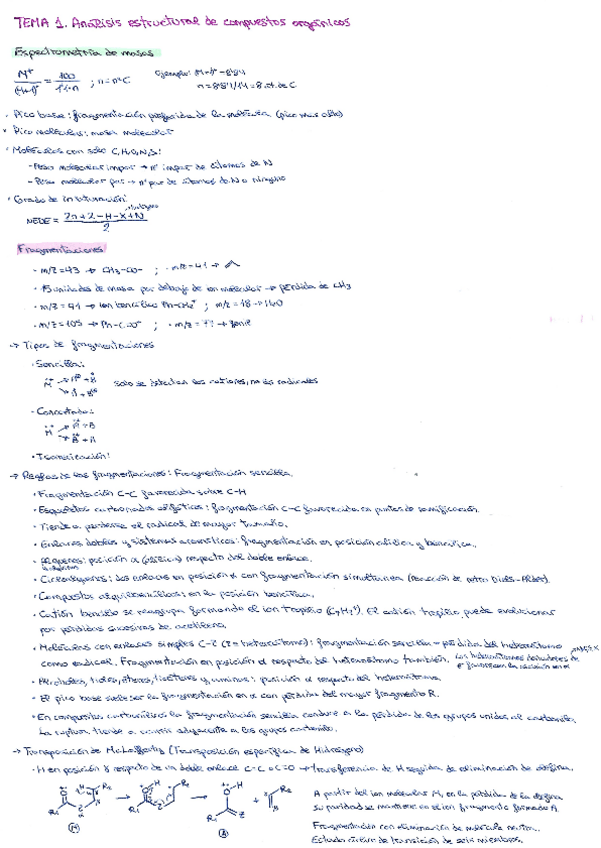 TEMA 1. Análisis estructural de compuestos orgánicos
Espectrometría de masas
M⁺/(M+1)⁺ = 100/1'1·n ; n=nºC Ejemplo: (M+1)⁺=8'81
n=8'81/1'1=8 át. de C
· Pico base: fragmentación preferida de la molécula (pico más alto)
· Pico molecular: masa molecular
· Moléculas con solo C,H,O,N,S:
- Peso molecular impar → nº impar de átomos de N
- Peso molecular par → nº par de átomos de N o ninguno
· Grado de insaturación:
NEDE = 2n+2-H-X+N / 2
Fragmentaciones
· m/z=43 → CH₃-CO- ; · m/z=41 →
· 15 unidades de masa por debajo de ion molecular → pérdida de CH₃
· m/z=91 → ion bencílico Ph-CH₂⁺ ; m/z=18 → H₂O
· m/z=105 → Ph-C=O⁺ ; · m/z=77 →
→ Tipos de fragmentaciones
· Sencilla:
solo se detectan los cationes, no los radicales
· Concertada:
· Transposición:
→ Reglas de las fragmentaciones: Fragmentación sencilla.
· Fragmentación C-C favorecida sobre C-H
· Esqueletos carbonados alifáticos: fragmentación C-C favorecida en puntos de ramificación.
· Tiende a perderse el radical de mayor tamaño.
· Enlaces dobles y sistemas aromáticos: fragmentación en posición alílica y bencílica.
· Alquenos: posición α (alílica) respecto del doble enlace.
· Ciclohexenos: dos enlaces en posición α con fragmentación simultánea (reacción de retro Diels-Alder).
· Compuestos alquilbencílicos: en la posición bencílica.
· Catión bencilo se reagrupa formando el ion tropilio (C₇H₇⁺). El catión tropilio puede evolucionar
por pérdidas sucesivas de acetileno.
· Moléculas con enlaces simples C-Z (Z=heteroátomo): fragmentación sencilla - pérdida del heteroátomo
como radical. Fragmentación en posición α respecto del heteroátomo también.
· Alcoholes, tioles, éteres, tioéteres y aminas: posición α respecto del heteroátomo.
· El pico base suele ser la fragmentación en α con pérdida del mayor fragmento R.
· En compuestos carbonílicos la fragmentación sencilla conduce a la pérdida de los grupos unidos al carbonilo.
La ruptura tiende a ocurrir adyacente a los grupos carbonilo.
→ Transposición de McLafferty (Transposición específica de Hidrógeno)
· H en posición γ respecto de un doble enlace C=C o C=O → Transferencia de H seguida de eliminación de olefina.
A partir del ion molecular M, en la pérdida de la olefina
su paridad se mantiene en el ion fragmento formado A.
Fragmentación con eliminación de molécula neutra.
Estado cíclico de transición de seis miembros.